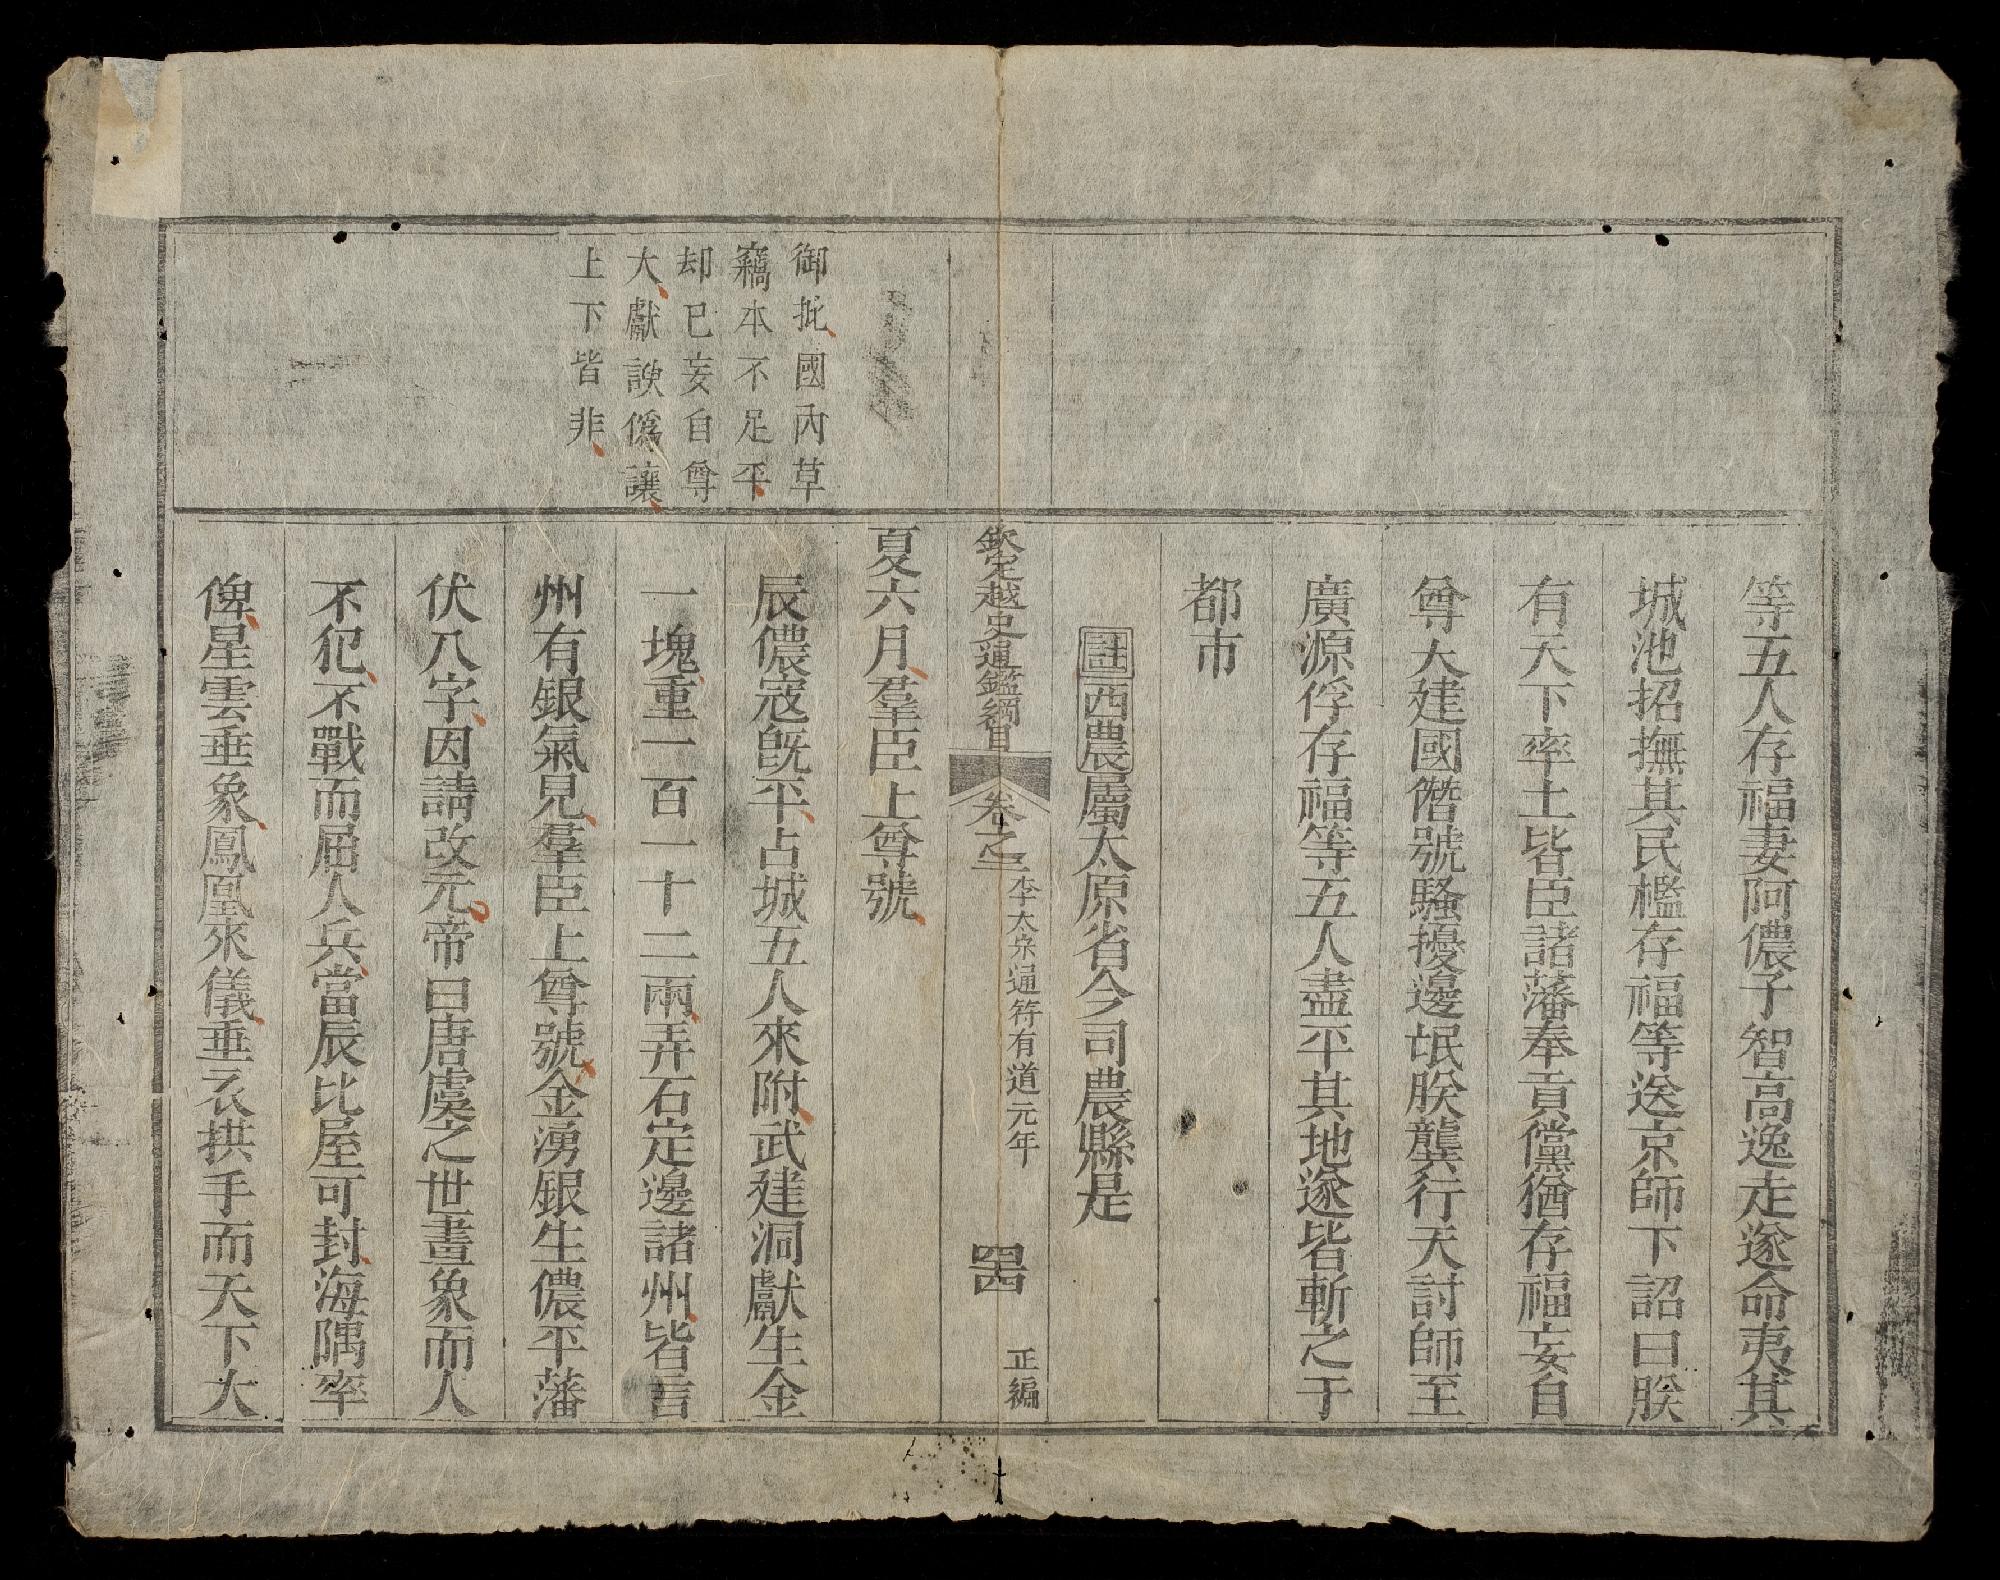 等五人存福妻阿儂子智高逸走遂命夷其
城池招撫其民檻存福等送京師下詔曰朕
有天下率土皆臣諸藩奉貢儻猶存福妄自
尊大建國僭號騷擾邊氓朕龔行天討師至
廣源俘存福等五人盡平其地遂皆斬之于
都市
註西農屬太原省今司農縣是
欽定越史通鑑綱目 卷之二 李太宗通符有道元年 四四 正編
夏六月羣臣上尊號
辰儂寇旣平占城五人來附武建洞獻生金
一塊重一百一十二兩弄石定邊諸州皆言
州有銀氣見羣臣上尊號金湧銀生儂平藩
伏八字因請改元帝曰唐虞之世畫象而人
不犯不戰而屈人兵當辰比屋可封海隅率
俾星雲垂象鳳凰來儀垂衣拱手而天下大
御批國內草
竊本不足平
却已妄自尊
大獻諛僞讓
上下皆非